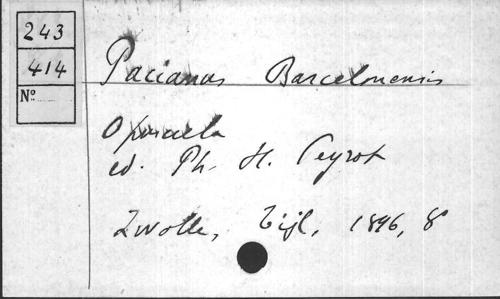 243
414
Nº
Pacianus Barcelonensis
Opuscula
ed. Ph. H. Peyrot
Zwolle, Tijl, 1896, 8°